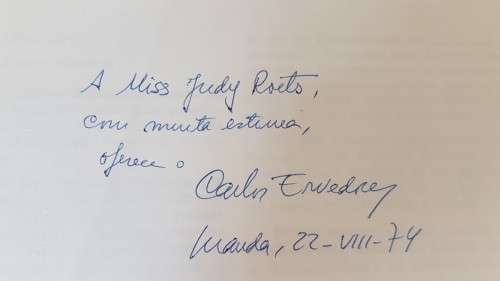 A Miss Judy Roets,
com muita estima,
oferece o
Carlos Ervedosa
Luanda, 22-VIII-74